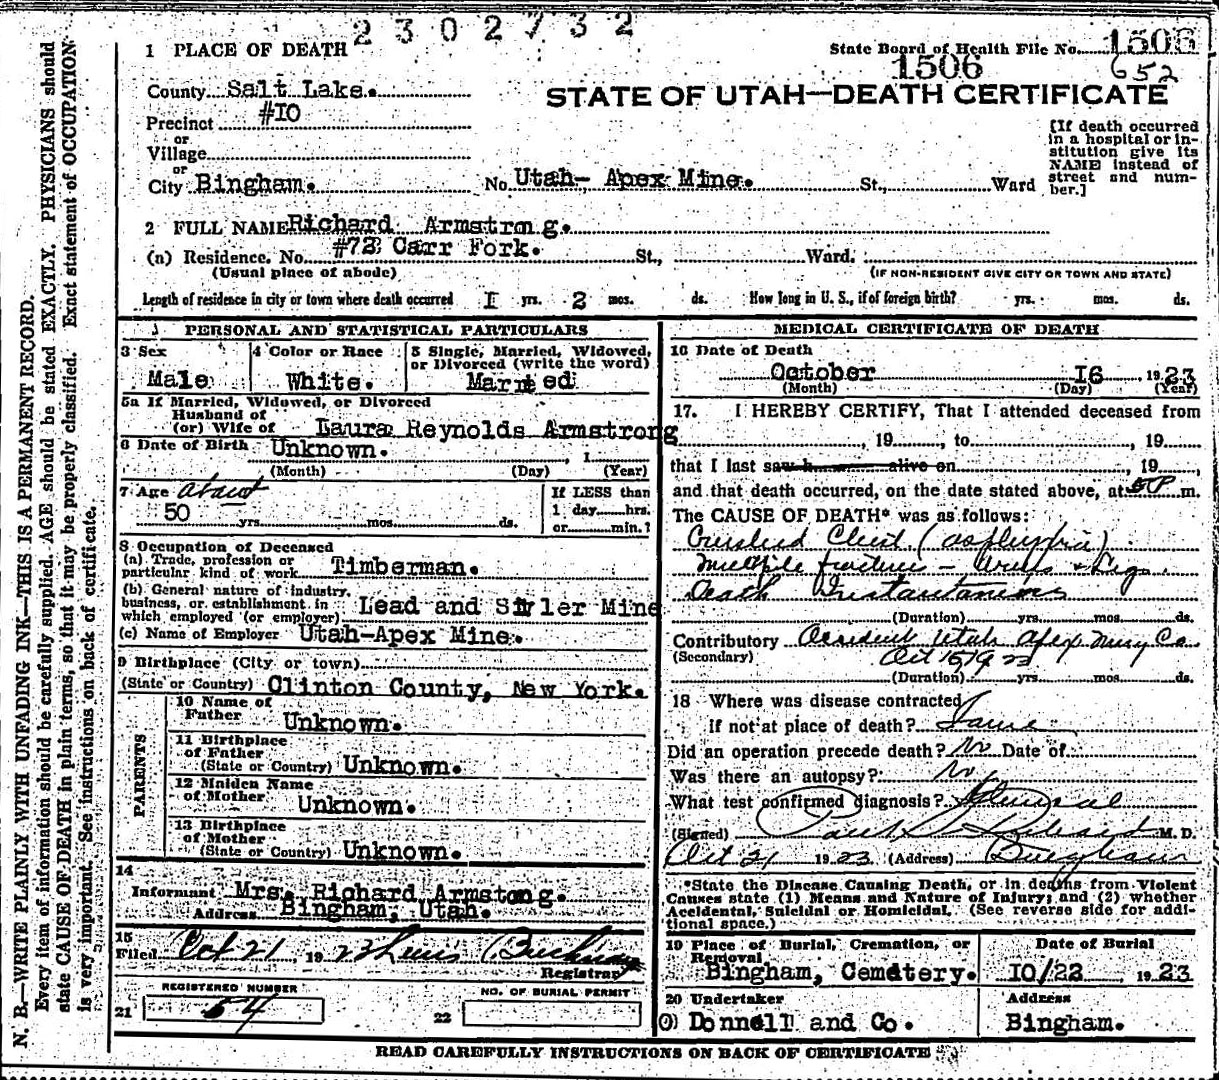 2302732
1 PLACE OF DEATH
State Board of Health File No. 1506
1506 652
County Salt Lake.
STATE OF UTAH—DEATH CERTIFICATE
Precinct #10
or
Village
or
City Bingham. No. Utah- Apex Mine. St., Ward
[If death occurred
in a hospital or in-
stitution give its
NAME instead of
street and num-
ber.]
2 FULL NAME Richard Armstrong.
(a) Residence. No. #72 Carr Fork. St., Ward.
(Usual place of abode) (IF NON-RESIDENT GIVE CITY OR TOWN AND STATE)
Length of residence in city or town where death occurred 1 yrs. 2 mos. ds. How long in U. S., if of foreign birth? yrs. mos. ds.
PERSONAL AND STATISTICAL PARTICULARS
3 Sex
Male
4 Color or Race
White.
5 Single, Married, Widowed,
or Divorced (write the word)
Married
5a If Married, Widowed, or Divorced
Husband of
(or) Wife of Laura Reynolds Armstrong
6 Date of Birth Unknown. , 1
(Month) (Day) (Year)
7 Age about
50 yrs. mos. ds.
If LESS than
1 day hrs.
or min.?
8 Occupation of Deceased
(a) Trade, profession or
particular kind of work Timberman.
(b) General nature of industry,
business, or establishment in
which employed (or employer) Lead and Silver Mine
(c) Name of Employer Utah-Apex Mine.
9 Birthplace (City or town)
(State or Country) Clinton County, New York.
PARENTS
10 Name of
Father Unknown.
11 Birthplace
of Father
(State or Country) Unknown.
12 Maiden Name
of Mother Unknown.
13 Birthplace
of Mother
(State or Country) Unknown.
14
Informant Mrs. Richard Armstong.
Address Bingham, Utah.
15
Filed Oct 21, 1923 Lewis
Registrar
REGISTERED NUMBER
21 54
NO. OF BURIAL PERMIT
22
MEDICAL CERTIFICATE OF DEATH
16 Date of Death
October 16 1923
(Month) (Day) (Year)
17. I HEREBY CERTIFY, That I attended deceased from
, 19 , to , 19
that I last saw h alive on , 19 ,
and that death occurred, on the date stated above, at 5P m.
The CAUSE OF DEATH* was as follows:
Crushed Chest (asphyxia)
Multiple fractures - Arms & Legs.
Death Instantaneous
(Duration) yrs. mos. ds.
Contributory Accident Utah Apex Co.
(Secondary) Oct
(Duration) yrs. mos. ds.
18 Where was disease contracted
if not at place of death? Same
Did an operation precede death? No Date of
Was there an autopsy? No
What test confirmed diagnosis? Physical
(Signed) Paul S. Richards M. D.
Oct 21 1923 (Address) Bingham
*State the Disease Causing Death, or in deaths from Violent
Causes state (1) Means and Nature of Injury; and (2) whether
Accidental, Suicidal or Homicidal. (See reverse side for addi-
tional space.)
19 Place of Burial, Cremation, or
Removal
Bingham, Cemetery.
Date of Burial
10/22 1923
20 Undertaker
O Donnell and Co.
Address
Bingham.
READ CAREFULLY INSTRUCTIONS ON BACK OF CERTIFICATE
N. B.—WRITE PLAINLY WITH UNFADING INK—THIS IS A PERMANENT RECORD.
Every item of information should be carefully supplied. AGE should be stated EXACTLY. PHYSICIANS should
state CAUSE OF DEATH in plain terms, so that it may be properly classified. Exact statement of OCCUPATION
is very important. See instructions on back of certificate.